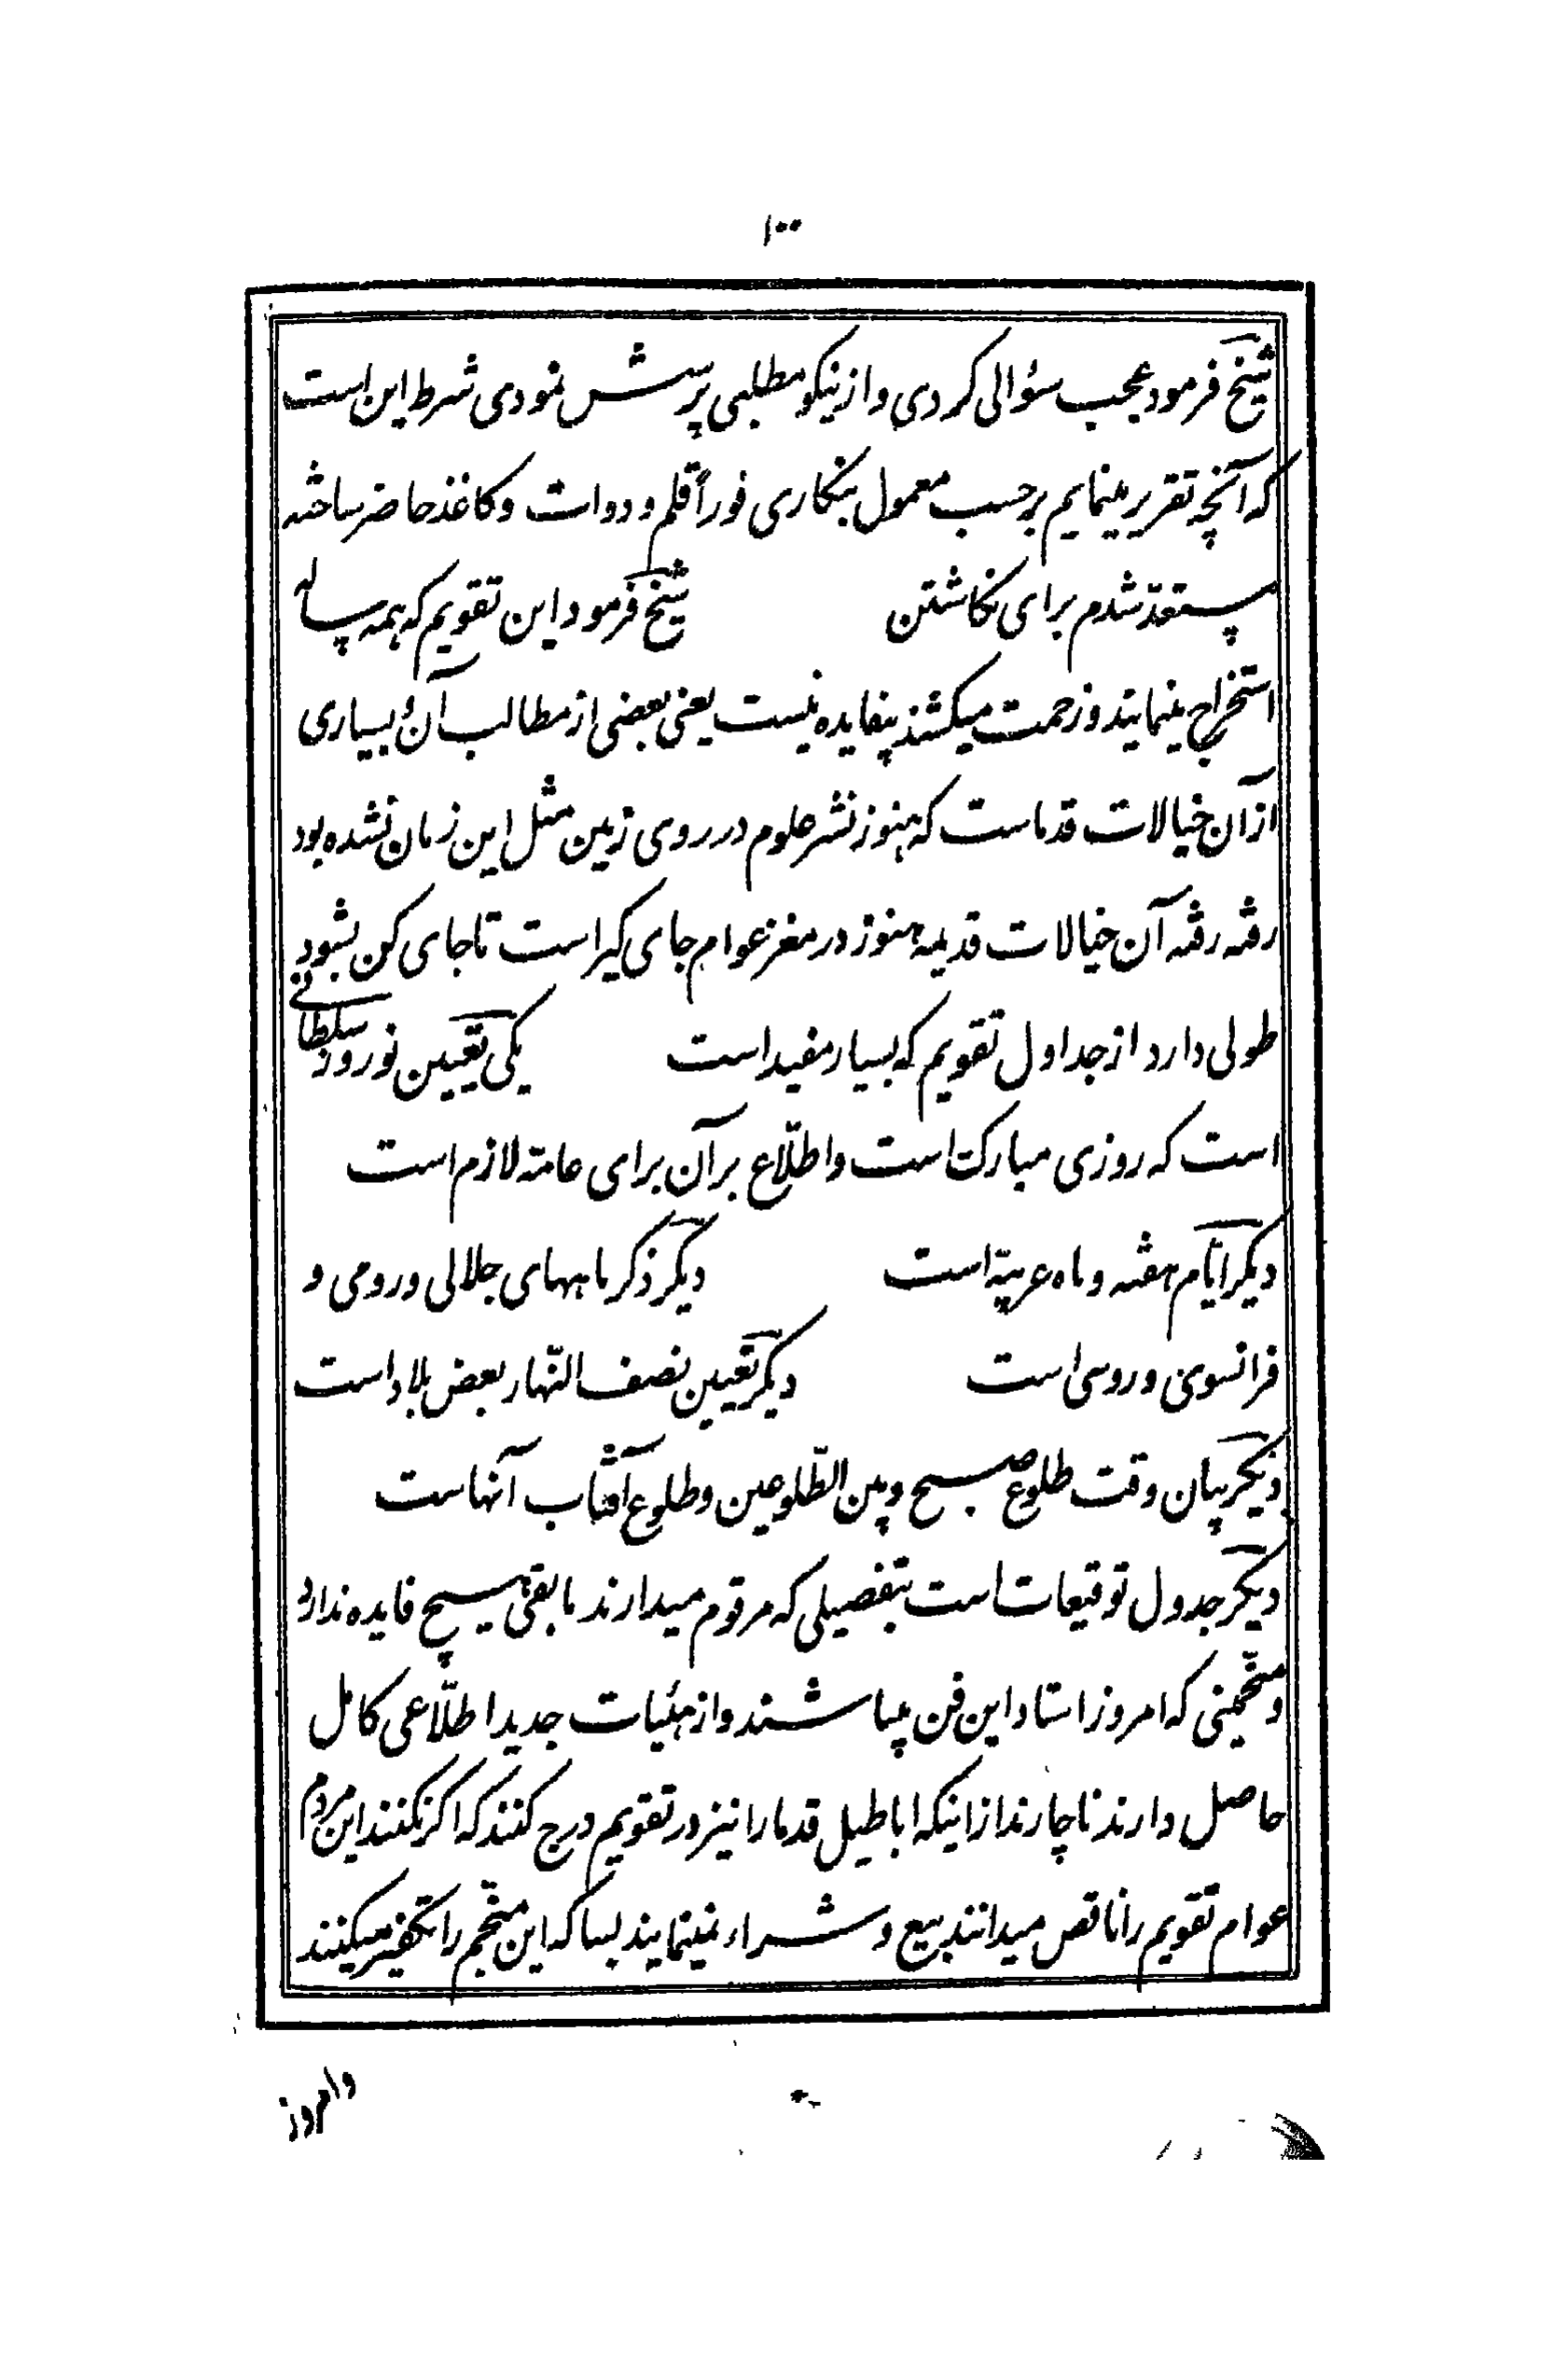 ۱۰۰
شیخ فرمود عجب سؤالی کردی و از نیکو مطلبی پرسش نمودی شرط این است
که آنچه تقریر مینمایم برحسب معمول بنگاری فوراً قلم و دوات و کاغذ حاضر ساخته
مستعدّ شدم برای نگاشتن شیخ فرمود این تقویم که همه ساله
استخراج مینمایند و زحمت میکشند بیفایده نیست یعنی بعضی از مطالب آن و بسیاری
از آن خیالات قدماست که هنوز نشر علوم در روی زمین مثل این زمان نشده بود
رفته رفته آن خیالات قدیمه هنوز در مغز عوام جای گیر است تا جای کن بشود
طولی دارد از جداول تقویم که بسیار مفید است یکی تعیین نوروز سلطانی
است که روزی مبارک است و اطلّاع بر آن برای عامّه لازم است
دیگر ایّام هفته و ماه عربیّه است دیگر ذکر ماههای جلالی و رومی و
فرانسوی و روسی است دیگر تعیین نصف النّهار بعض بلاد است
دیگر بیان وقت طلوع صبح و بین الطّلوعین و طلوع آفتاب آنهاست
دیگر جدول توقیعات است بتفصیلی که مرقوم میدارند مابقی هیچ فایده ندارد
و منجّمینی که امروز استاد این فن میباشند و از هیئات جدید اطلّاعی کامل
حاصل دارند ناچارند از اینکه اباطیل قدما را نیز در تقویم درج کنند که اگر نکنند این مردم
عوام تقویم را ناقص میدانند بیع و شراء نمینمایند بسا که این منجّم را تکفیر میکنند
و امروز